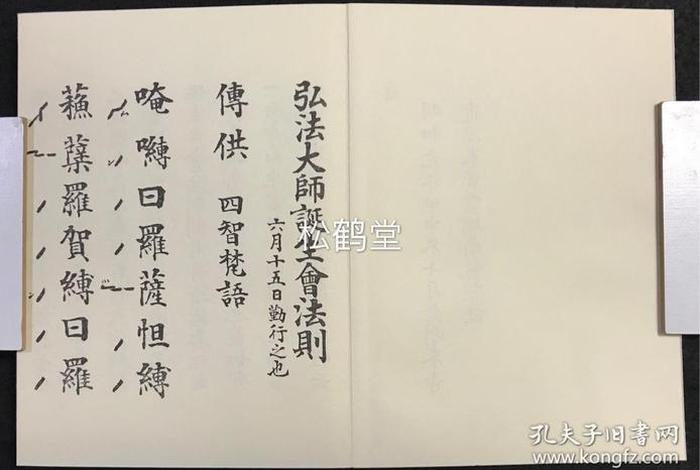 弘法大師誕生會法則
六月十五日勤行之也
傳供 四智梵語
唵嚩日羅薩怛縛
蘓蘖羅賀縛日羅
松鹤堂
孔夫子旧书网
www.kongfz.com